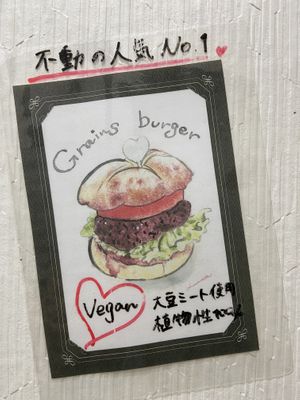 不動の人気 No.1
Grains burger
Vegan
大豆ミート使用
植物性100%